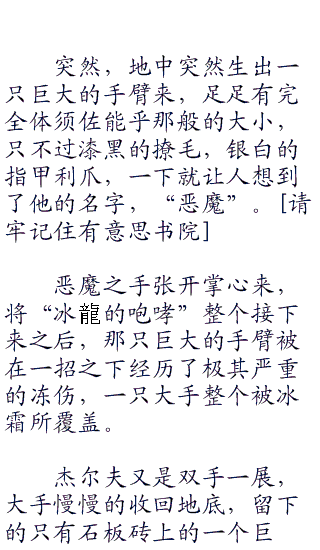 突然，地中突然生出一
只巨大的手臂来，足足有完
全体须佐能乎那般的大小，
只不过漆黑的撩毛，银白的
指甲利爪，一下就让人想到
了他的名字，“恶魔”。[请
牢记住有意思书院]
恶魔之手张开掌心来，
将“冰龍的咆哮”整个接下
来之后，那只巨大的手臂被
在一招之下经历了极其严重
的冻伤，一只大手整个被冰
霜所覆盖。
杰尔夫又是双手一展，
大手慢慢的收回地底，留下
的只有石板砖上的一个巨